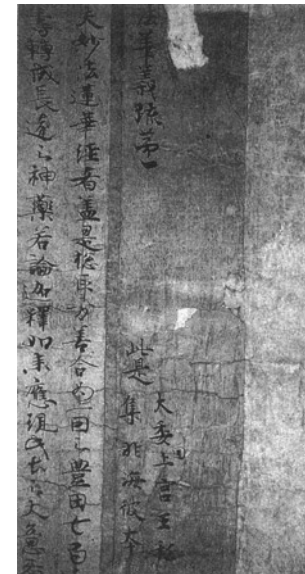 法華義疏第一
此是
大委上宮王私
集非海彼本
夫妙法蓮華經者盖是惣取万善合為一因之豊田七百
壽轉成長遠之神藥若論迦釋如来應現此土之大意